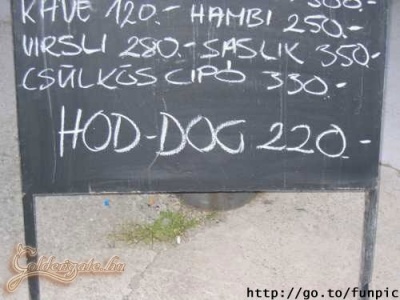 KÁVÉ 120.- HAMBI 250.-
VIRSLI 280.- SASLIK 350-
CSÜLKÖS CIPÓ 330.-
HOD-DOG 220.-
Goldengate.hu
http://go.to/funpic